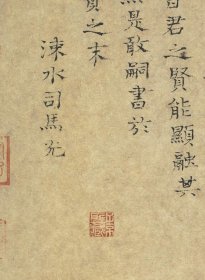 君之賢能顯融其
是敢嗣書於
之末
涑水司馬光